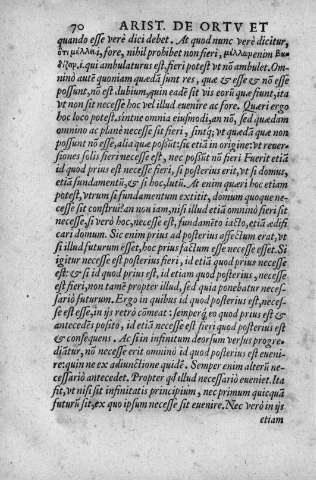 70 ARIST. DE ORTV ET
quando esse verè dici debet. At quod nunc verè dicitur,
ὅτι μέλλει, fore, nihil prohibet non fieri, μέλλων enim βα-
δίζειν, i. qui ambulaturus est, fieri potest vt nõ ambulet. Om-
ninò autē quoniam quædā sunt res, quæ & esse & nõ esse
possunt, nõ est dubium, quin eadē sit vis eorū quæ fiunt, ita
vt non sit necesse hoc vel illud euenire ac fore. Quæri ergo
hoc loco potest, sintne omnia eiusmodi, an nõ, sed quædam
omnino ac planè necesse sit fieri, sintq́; vt quædā quæ non
possunt nõ esse, alia quæ possūt: sic etiā in origine: vt reuer-
siones solis fieri necesse est, nec possūt nõ fieri Fuerit etiā
id quod prius est necesse fieri, si posterius erit, vt si domus,
etiā fundamentū, & si hoc, lutū. At enim quæri hoc etiam
potest, vtrum si fundamentum extitit, domum quoque ne-
cesse sit construi: an non iam, nisi illud etiā omninò fieri sit
necesse, si verò hoc, necesse est, fundamēto iacto, etiā ædifi
cari domum. Sic enim prius ad posterius affectum erat, vt
si illud futurum esset, hoc prius factum esse necesse esset. Si
igitur necesse est posterius fieri, id etiā quod prius necesse
est: & si id quod prius est, id etiam quod posterius, necesse
est fieri, non tamē propter illud, sed quia ponebatur necef-
sariò futurum. Ergo in quibus id quod posterius est, neces-
se est esse, in ijs retrò comeat: semperq́ eo quod prius est &
antecedēs positо, id etiā necesse est fieri quod posterius est
& consequens. Ac si in infinitum deorsum versus progre-
diatur, nõ necesse erit omninò id quod posterius est eueni-
re: quin ne ex adiunctione quidē. Semper enim alterū ne-
cessariò antecedet. Propter qd illud necessariò eueniet. Ita
fit, vt nisi sit infinitatis principium, nec primum quicquā
futurū sit, ex quo ipsum necesse sit euenire. Nec verò in ijs
etiam